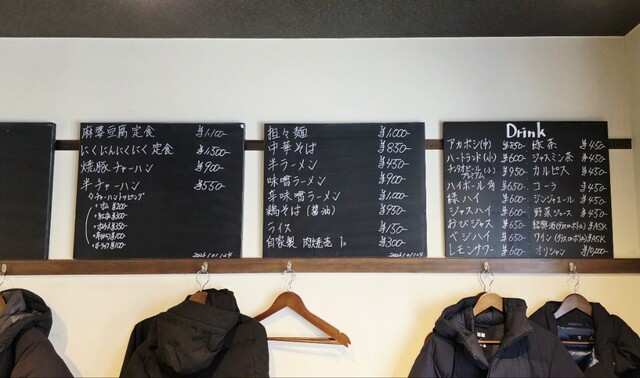 麻婆豆腐 定食 ¥1,100-
にくにんにくにく 定食 ¥1,500-
焼豚チャーハン ¥900-
半チャーハン ¥550-
チャーハントッピング
担々麺 ¥1,000-
中華そば ¥850-
半ラーメン ¥450-
味噌ラーメン ¥900-
辛味噌ラーメン ¥1,000-
鶏そば(醤油) ¥950-
ライス ¥150-
自家製 肉焼売 1ヶ ¥300-
Drink
アカボシ(中) ¥750-
ハートランド(小) ¥600-
ハイボール角 ¥650-
緑ハイ ¥600-
ジャスハイ ¥600-
レモンサワー ¥600-
緑茶 ¥450-
ジャスミン茶 ¥450-
カルピス ¥450-
コーラ ¥450-
ジンジャエール ¥450-
野菜ジュース ¥450-
オリシャン ¥10,000-